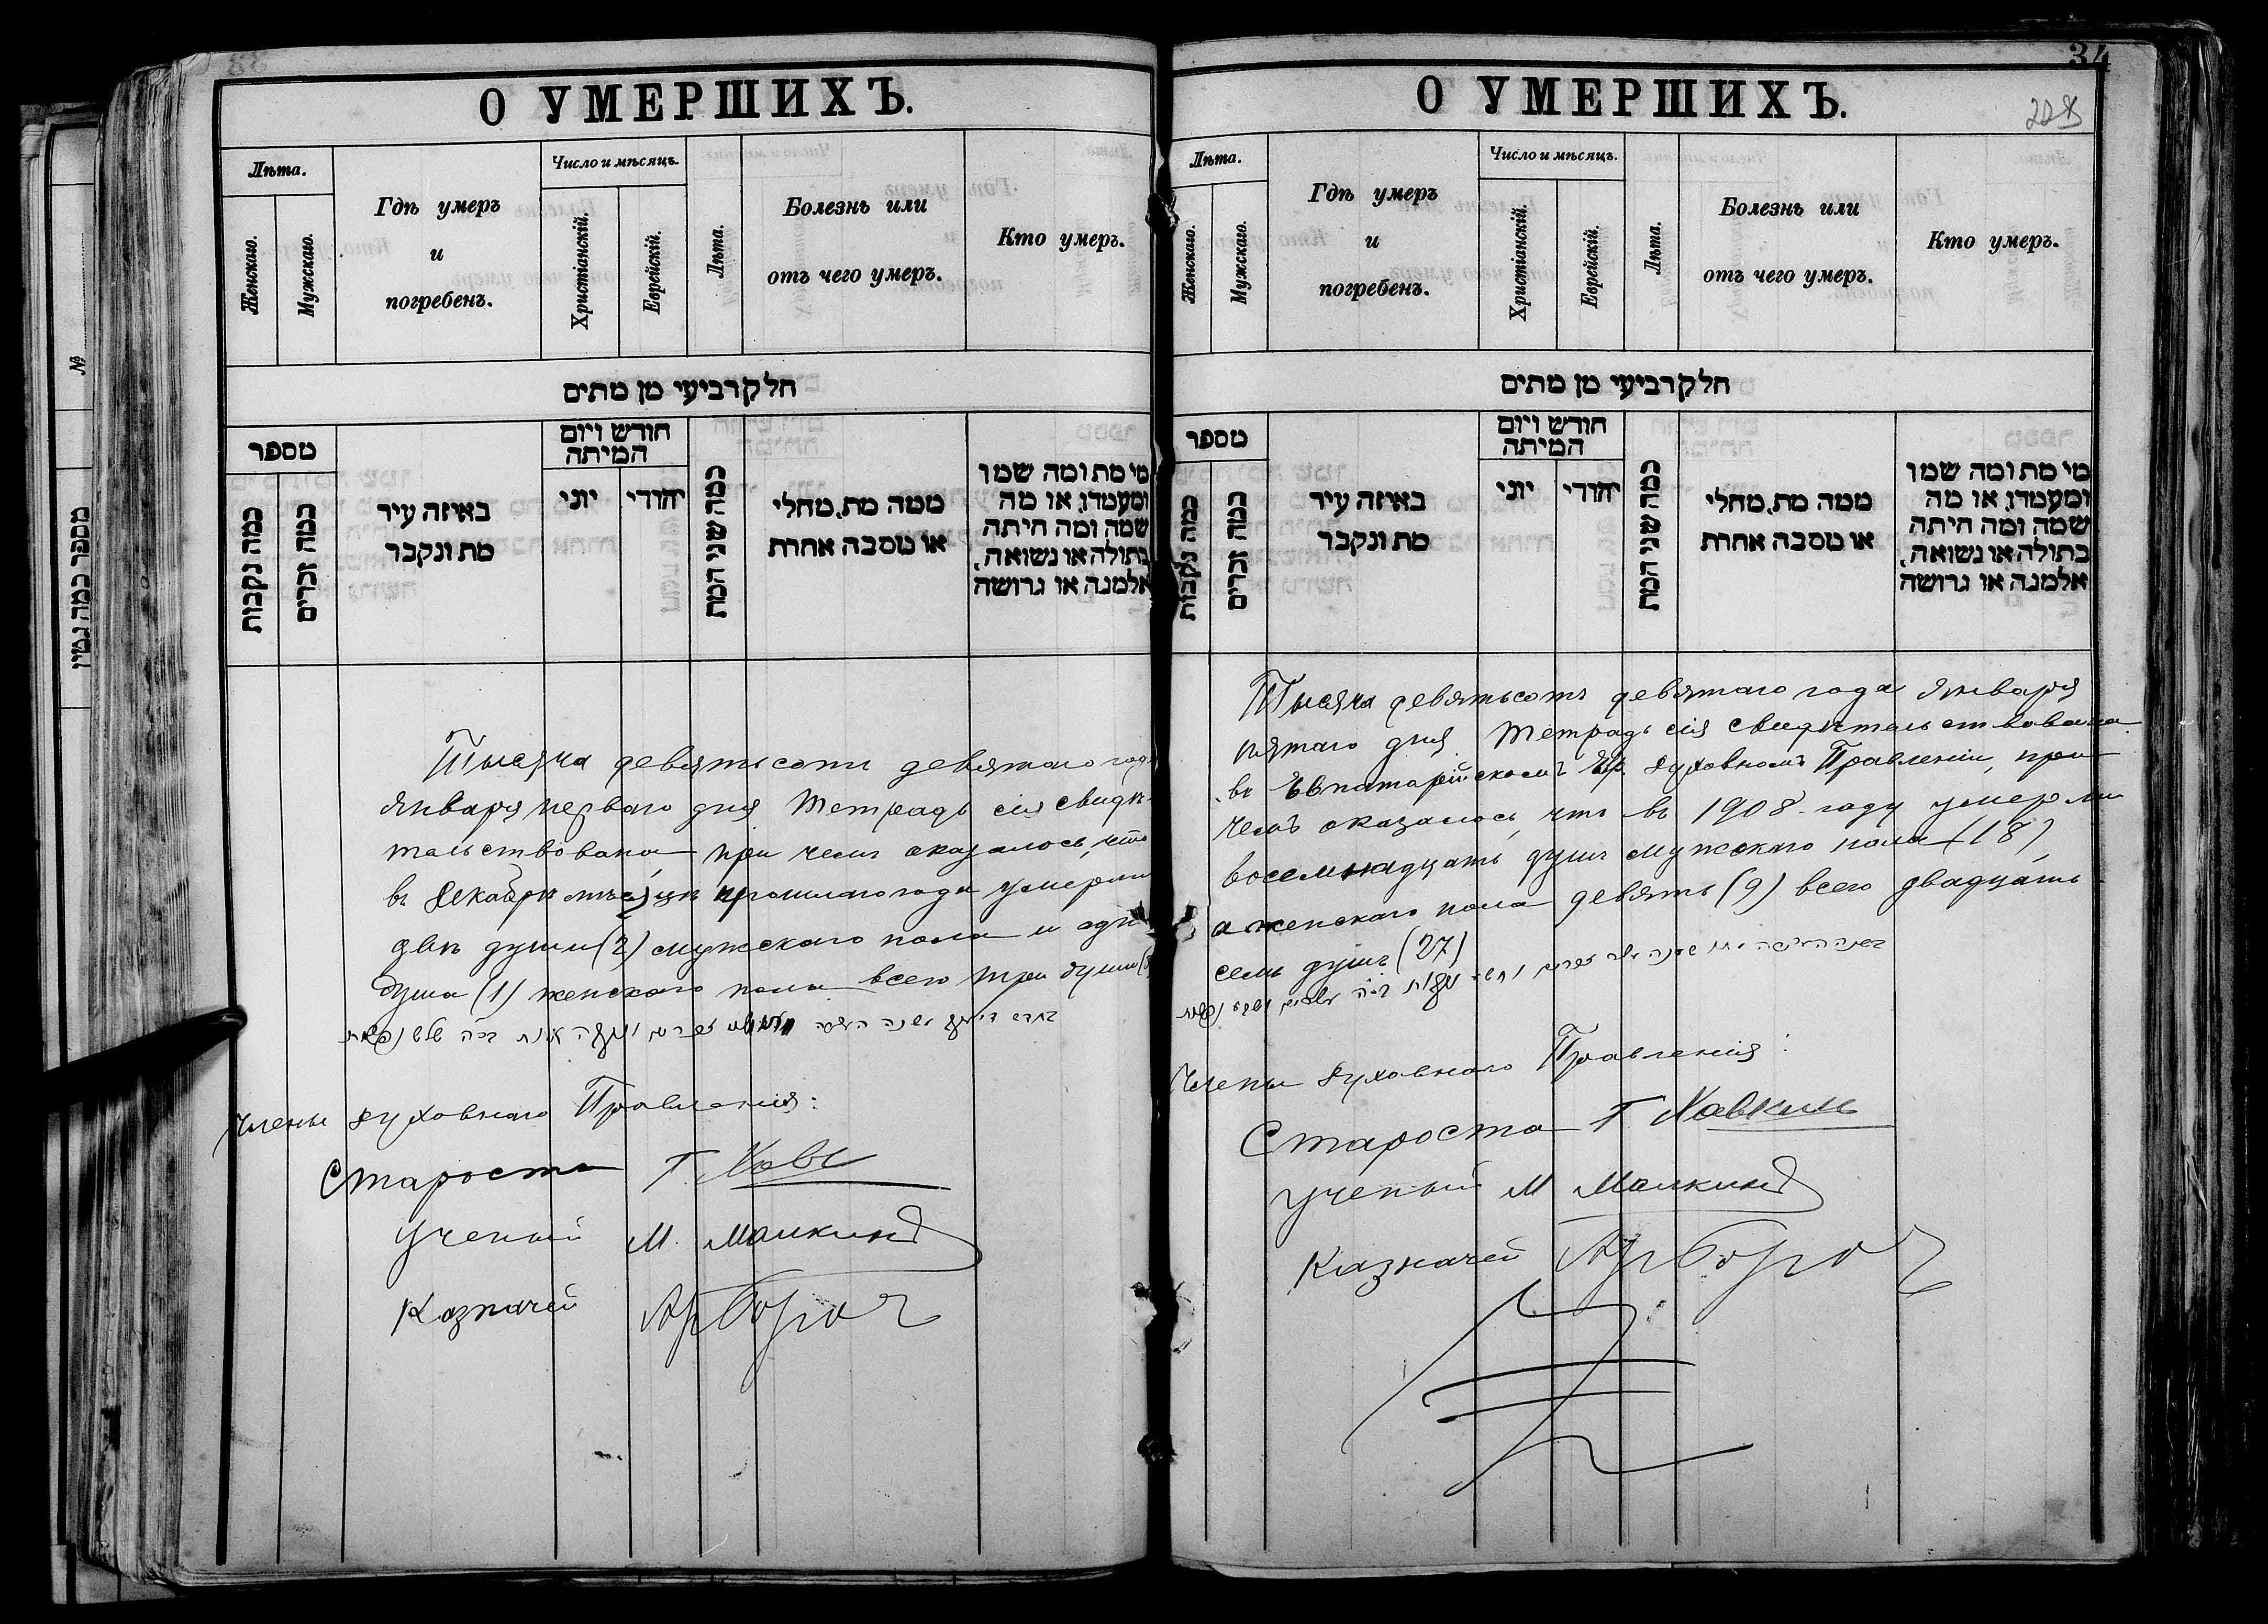 О УМЕРШИХЪ.
Лѣта.
Женскаго.
Мужскаго.
Гдѣ умеръ
и
погребенъ.
Число и мѣсяцъ.
Христіанскій.
Еврейскій.
Лѣта.
Болезнь или
отъ чего умеръ.
Кто умеръ.
חלק רביעי מן מתים
מספר
כמה נקבות
כמה זכרים
באיזה עיר
מת ונקבר
חודש ויום
המיתה
יוני
יהודי
כמה שני המת
ממה מת, מחלי
או מסבה אחרת
מי מת ומה שמו
ומעמדו, או מה
שמה ומה היתה
בתולה או נשואה,
אלמנה או גרושה
Тысяча девятьсотъ девятаго года
Января перваго дня Тетрадь сія свидѣ-
тельствована при чемъ оказалось, что
въ Декабрѣ мѣсяцѣ прошлаго года умерли
двѣ души (2) мужскаго пола и одна
душа (1) женскаго пола всего три души (3
Члены Духовнаго Правленія:
Староста Г. Хавк
Ученый М. Малкинъ
Казначей
34
О УМЕРШИХЪ.
228
Лѣта.
Женскаго.
Мужскаго.
Гдѣ умеръ
и
погребенъ.
Число и мѣсяцъ.
Христіанскій.
Еврейскій.
Лѣта.
Болезнь или
отъ чего умеръ.
Кто умеръ.
חלק רביעי מן מתים
מספר
כמה נקבות
כמה זכרים
באיזה עיר
מת ונקבר
חודש ויום
המיתה
יוני
יהודי
כמה שני המת
ממה מת, מחלי
או מסבה אחרת
מי מת ומה שמו
ומעמדו, או מה
שמה ומה היתה
בתולה או נשואה,
אלמנה או גרושה
Тысяча девятьсотъ девятаго года Января
пятаго дня Тетрадь сія свидѣтельствована
въ Евпаторійскомъ Евр. Духовномъ Правленіи, при
чемъ оказалось, что въ 1908 году умерли
восемнадцать душъ мужскаго пола (18)
а женскаго пола девять (9) всего двадцать
семь душъ (27)
Члены Духовнаго Правленія:
Староста Г. Хавкинъ
Ученый М Малкинъ
Казначей
№
מספר כמה גטין